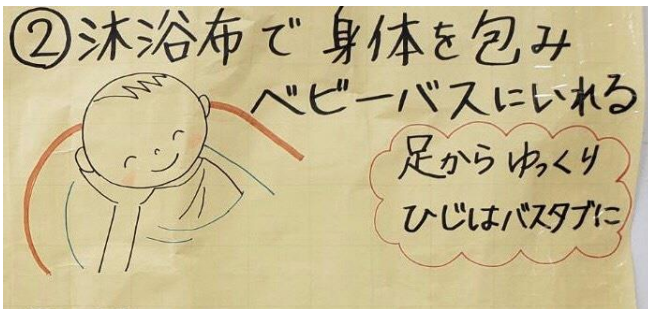 ②沐浴布で身体を包み
ベビーバスにいれる
足からゆっくり
ひじはバスタブに